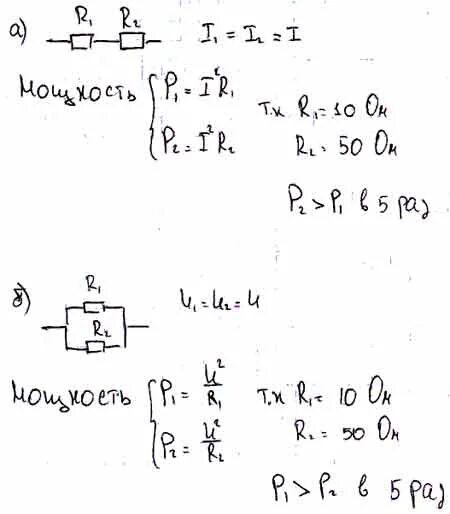 а) R₁ R₂ I₁ = I₂ = I
Мощность { P₁ = I²R₁
P₂ = I²R₂
т.к R₁ = 10 Ом
R₂ = 50 Ом
P₂ > P₁ в 5 раз
б) R₁
R₂
U₁ = U₂ = U
Мощность { P₁ = U²/R₁
P₂ = U²/R₂
т.к R₁ = 10 Ом
R₂ = 50 Ом
P₁ > P₂ в 5 раз